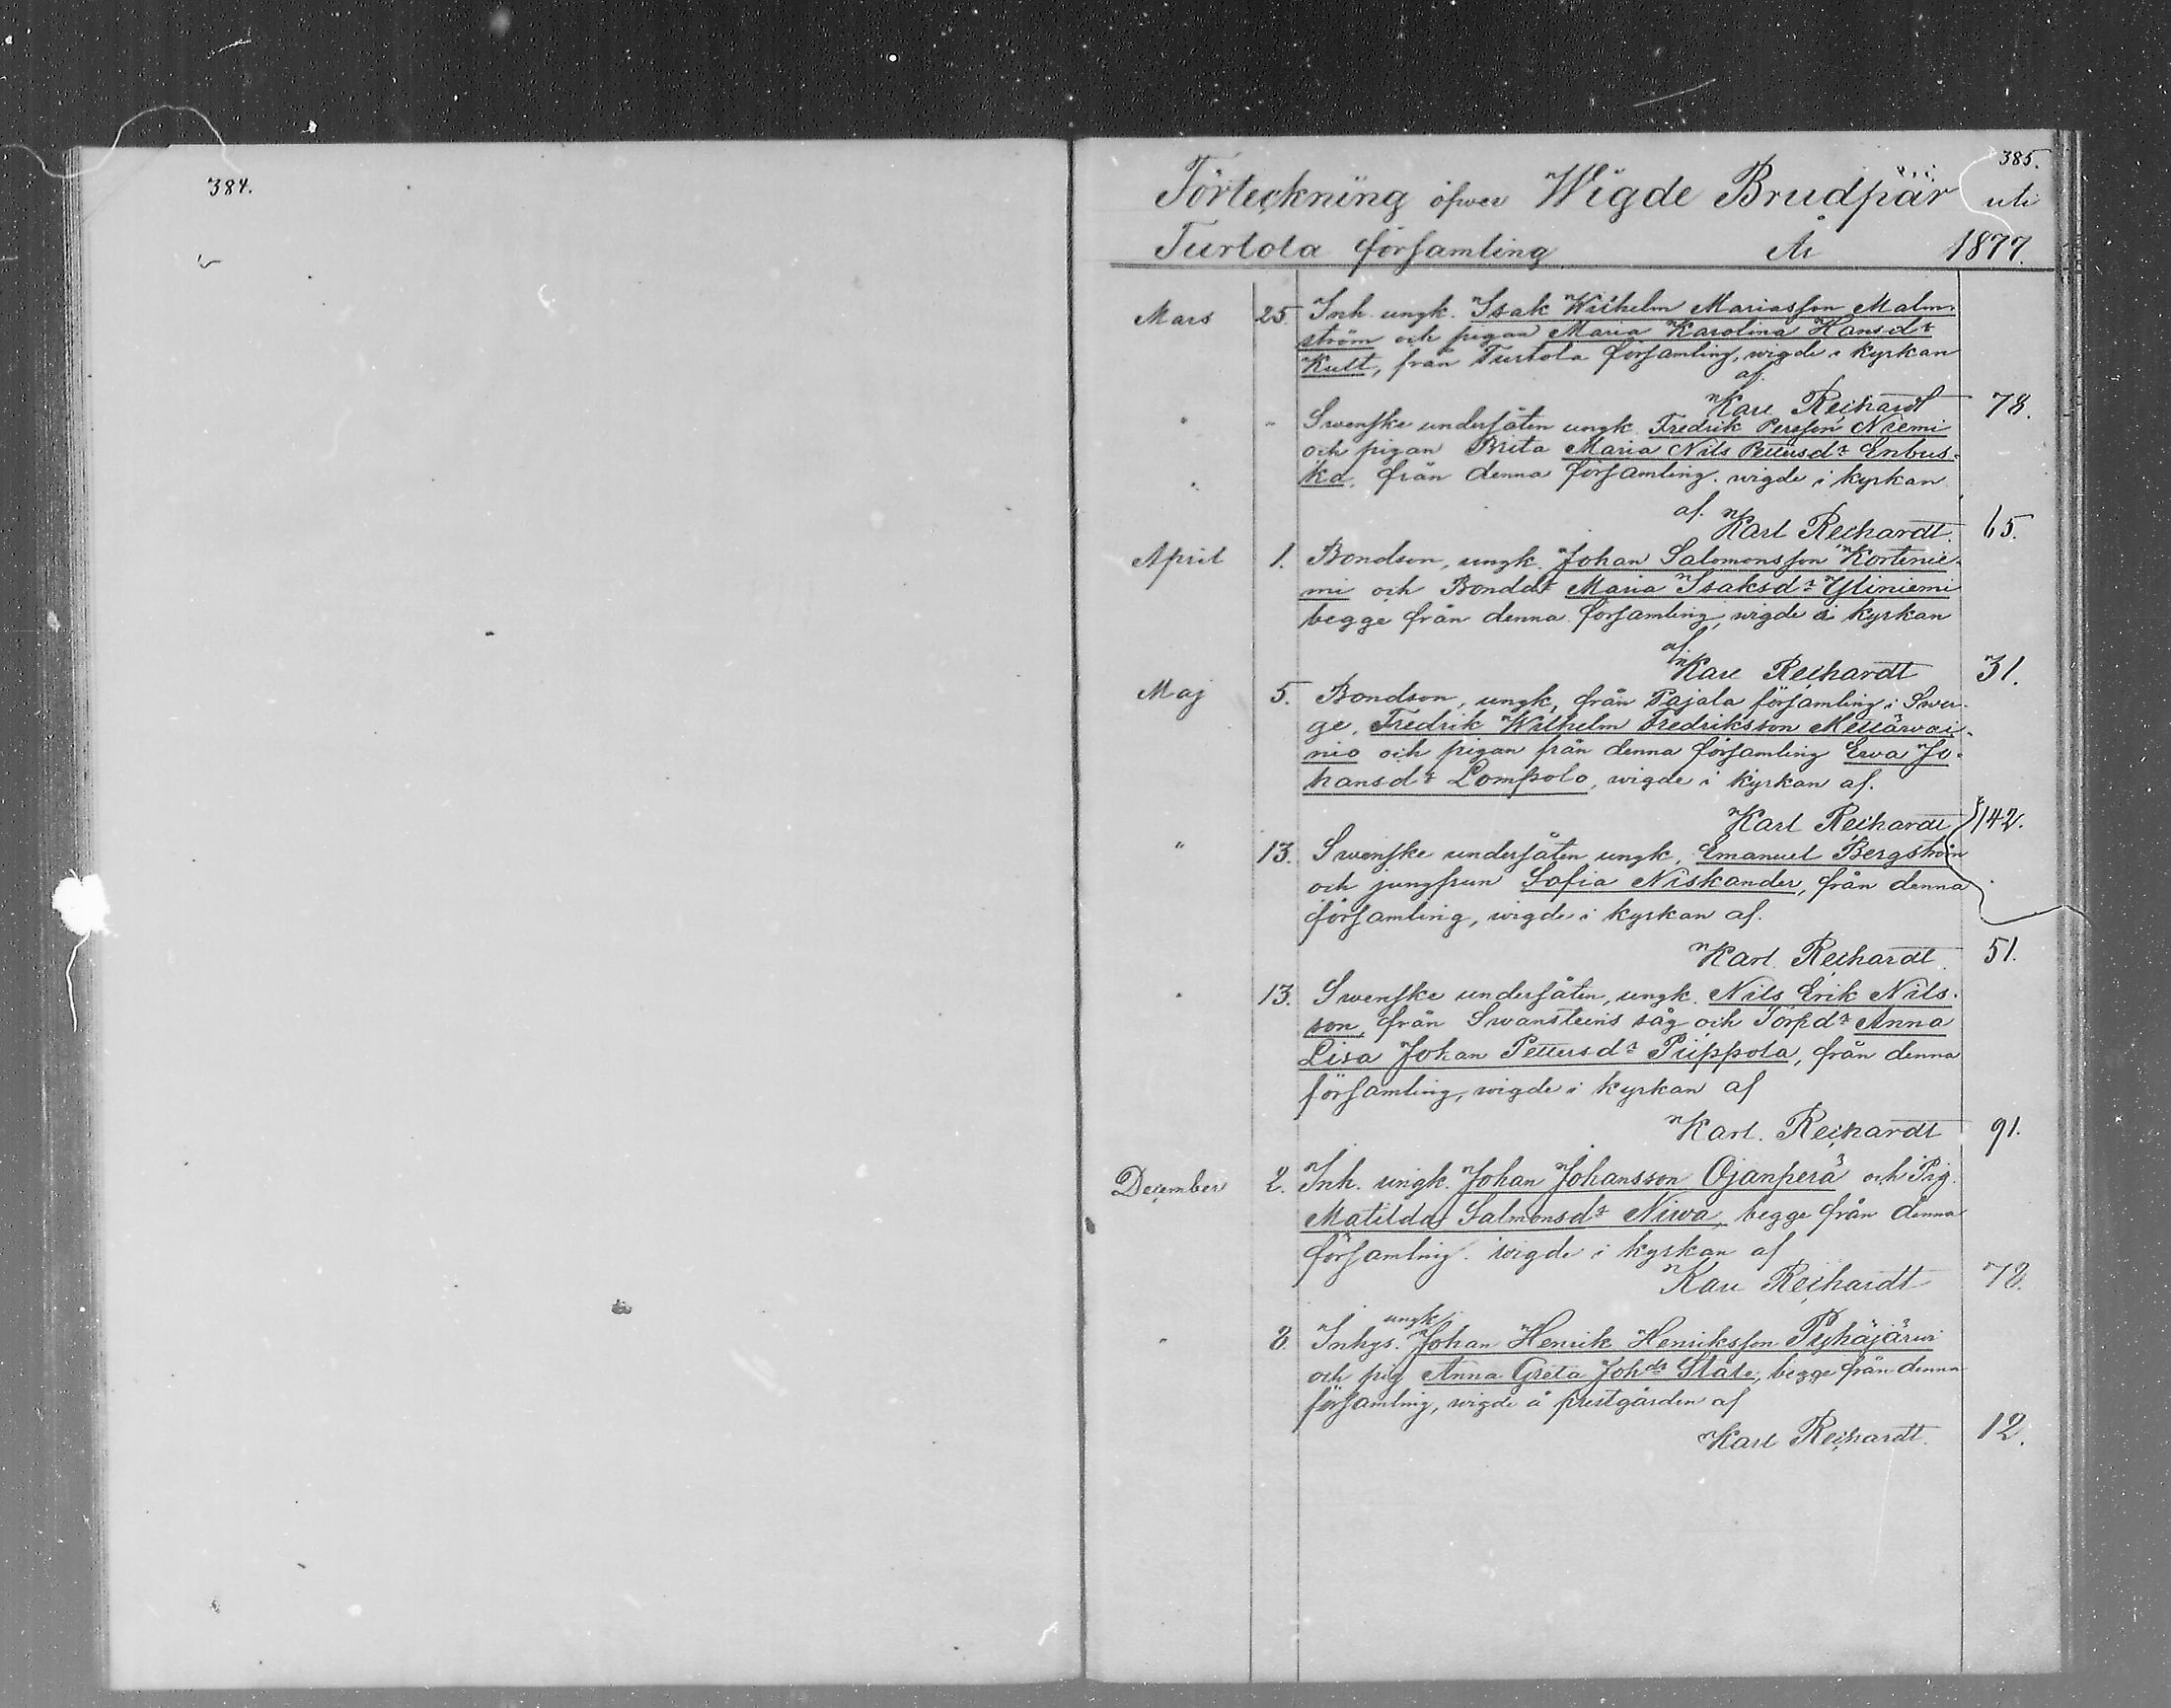 384.
385.
Förteckning öfwer Wigde Brudpar uti
Turtola församling År 1877.
Mars 25. Inh. ungk. Isak Wilhelm Mariasson Malm-
ström och pigan Maria Karolina Hansdr
Kult, från Turtola församling, wigde i kyrkan
af.
Karl Reichardt 78.
" " Swenske undersåten ungk. Fredrik Persson Niemi
och pigan Brita Maria Nils Pettersdr Enbus-
ka. från denna församling. wigde i kyrkan
af. Karl Reichardt. 65.
April 1. Bondson, ungk. Johan Salomonsson Kortenie-
mi och Bonddr Maria Isaksdr Yliniemi
begge från denna församling, wigde i kyrkan
af
Karl Reichardt 31.
Maj 5. Bondson, ungk, från Pajala församling i Swer-
ge, Fredrik Wilhelm Fredriksson Mettäwai-
nio och pigan från denna församling Ewa Jo-
hansdr Lompolo, wigde i kyrkan af.
Karl Reichardt 142.
" 13. Swenske undersåten ungk, Emanuel Bergström
och jungfrun Sofia Niskander, från denna
församling, wigde i kyrkan af.
Karl Reichardt. 51.
" 13. Swenske undersåten, ungk. Nils Erik Nils-
son, från Swansteins såg och Torpdr Anna
Lisa Johan Pettersdr Piippola, från denna
församling, wigde i kyrkan af
Karl. Reichardt 91.
December 2. Inh. ungk. Johan Johansson Ojanperä och Pig.
Matilda Salmonsdr Niwa, begge från denna
församling. wigde i kyrkan af
Karl Reichardt 78.
ungk
" 8. Inhys. Johan Henrik Henriksson Pyhäjärwi
och pig Anna Greta Johdr Ståte, begge från denna
församling, wigde å prestgården af
Karl Reichardt. 12.